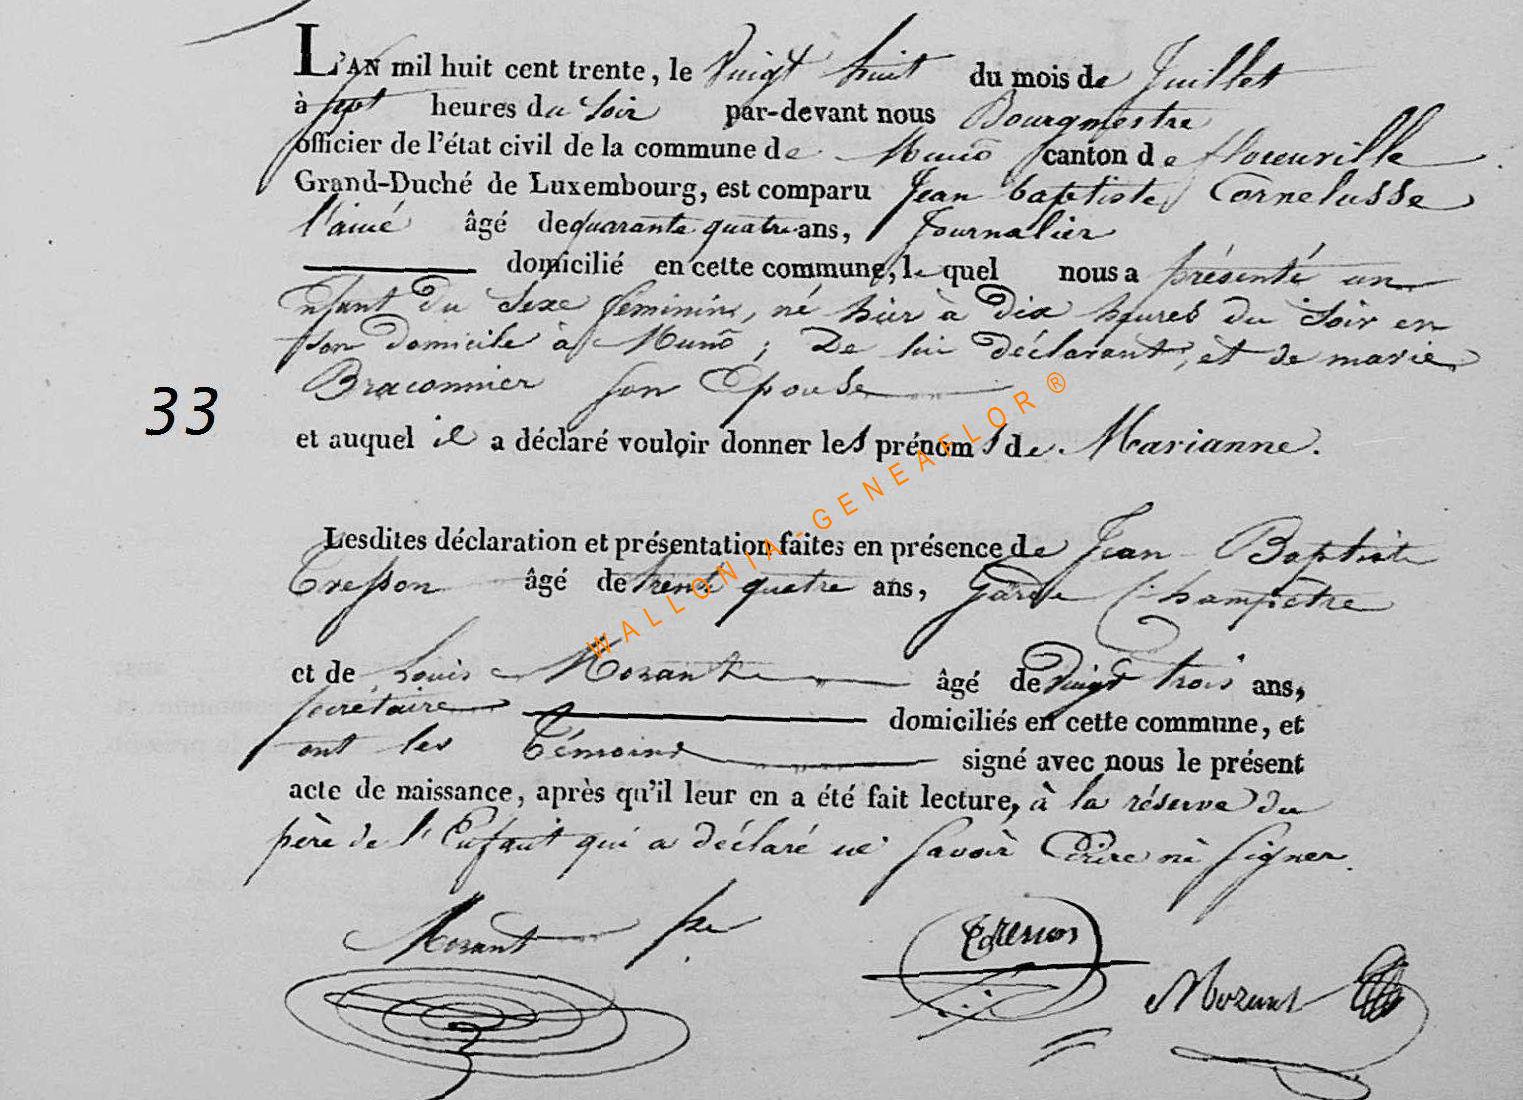 L'AN mil huit cent trente, le Vingt huit du mois de Juillet
à sept heures du soir par-devant nous Bourgmestre
officier de l'état civil de la commune de Muno canton de florenville
Grand-Duché de Luxembourg, est comparu Jean baptiste Cornelusse
l'ainé âgé de quarante quatre ans, Journalier
domicilié en cette commune, le quel nous a présenté un
Enfant du Sexe feminin, né hier à dix heures du Soir en
son domicile à Muno ; De lui déclarant, et de marie
Braconnier son Epouse
33
et auquel il a déclaré vouloir donner les prénoms de Marianne.
Lesdites déclaration et présentation faites en présence de Jean Baptiste
Tresson âgé de trente quatre ans, Garde Champêtre
et de Louis Mozant âgé de Vingt trois ans,
secrétaire domiciliés en cette commune, et
ont les Témoins signé avec nous le présent
acte de naissance, après qu'il leur en a été fait lecture, à la réserve du
père de l'Enfant qui a déclaré ne savoir Ecrire ni signer.
Mozant Tresson Mozant
WALLONIA-GENEAFLOR®